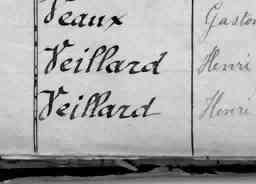 Veaux Gaston
Veillard Henri
Veillard Henri